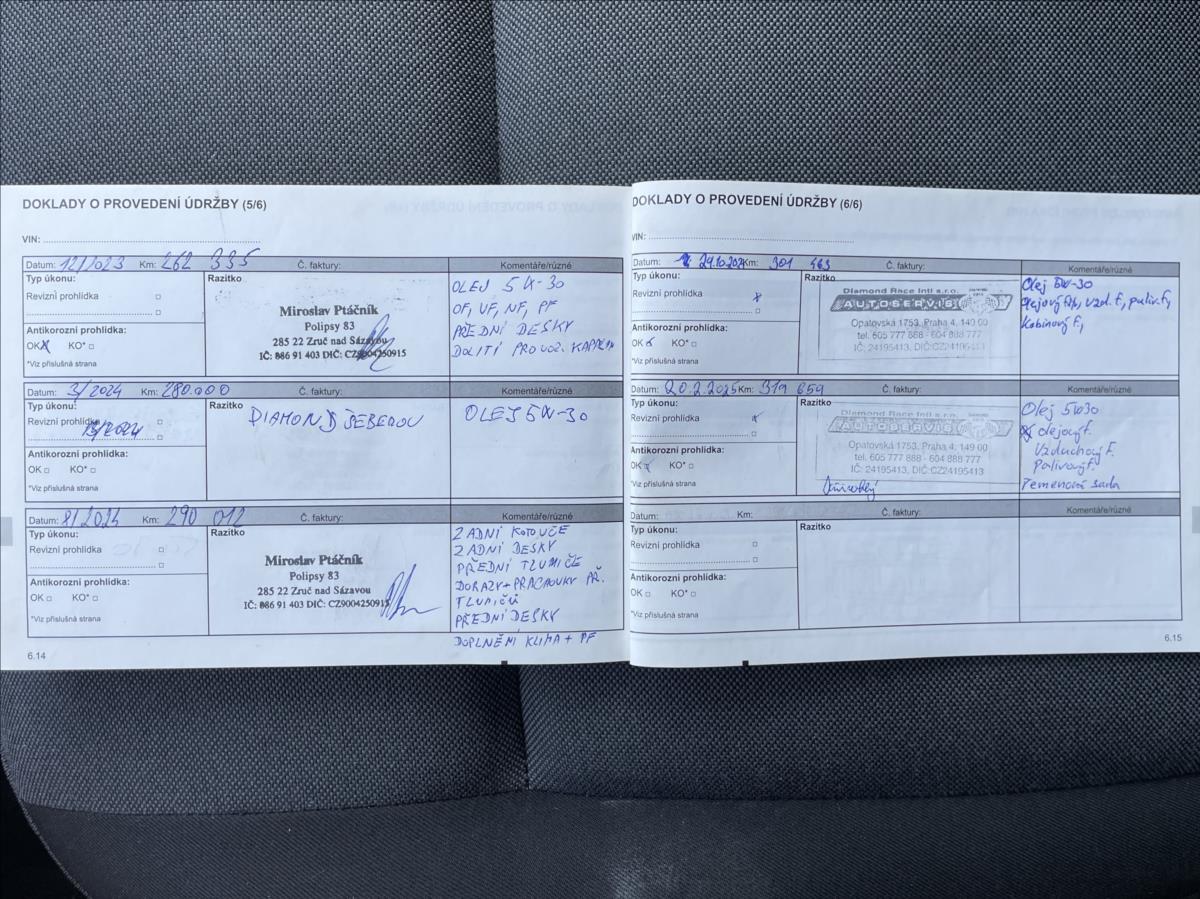 DOKLADY O PROVEDENÍ ÚDRŽBY (5/6)
VIN:
Datum: 12/2023 Km: 262 335 Č. faktury: Komentáře/různé
Typ úkonu: Razítko
Revizní prohlídka
Antikorozní prohlídka:
OK KO*
*Viz příslušná strana
Miroslav Ptáčník
Polipsy 83
285 22 Zruč nad Sázavou
IČ: 886 91 403 DIČ: CZ9004250915
OLEJ 5W-30
OF, VF, NF, PF
PŘEDNÍ DESKY
DOLITÍ PROVOZ. KAPALIN
Datum: 3/2024 Km: 280.000 Č. faktury: Komentáře/různé
Typ úkonu: Razítko
Revizní prohlídka
3/2024
Antikorozní prohlídka:
OK KO*
*Viz příslušná strana
DIAMOND ŠEBEROV
OLEJ 5W-30
Datum: 8/2024 Km: 290 012 Č. faktury: Komentáře/různé
Typ úkonu: Razítko
Revizní prohlídka
Antikorozní prohlídka:
OK KO*
*Viz příslušná strana
Miroslav Ptáčník
Polipsy 83
285 22 Zruč nad Sázavou
IČ: 886 91 403 DIČ: CZ9004250915
ZADNÍ KOTOUČE
ZADNÍ DESKY
PŘEDNÍ TLUMIČE
DORAZY+PRACHOVKY PŘ.
TLUMIČŮ
PŘEDNÍ DESKY
DOPLNĚNÍ KLIMA + PF
6.14
DOKLADY O PROVEDENÍ ÚDRŽBY (6/6)
VIN:
Datum: 29.10.2024 Km: 301 463 Č. faktury: Komentáře/různé
Typ úkonu: Razítko
Revizní prohlídka
Antikorozní prohlídka:
OK KO*
*Viz příslušná strana
Diamond Race Intl s.r.o.
AUTOSERVIS
Opatovská 1753, Praha 4, 149 00
tel. 605 777 888 - 604 888 777
IČ: 24195413, DIČ:CZ24195413
Olej 5W-30
olejový f., vzd. f., paliv. f,
Kabinový f,
Datum: 20.2.2025 Km: 319 659 Č. faktury: Komentáře/různé
Typ úkonu: Razítko
Revizní prohlídka
Antikorozní prohlídka:
OK KO*
*Viz příslušná strana
Diamond Race Intl s.r.o.
AUTOSERVIS
Opatovská 1753, Praha 4, 149 00
tel. 605 777 888 - 604 888 777
IČ: 24195413, DIČ:CZ24195413
Olej 5W30
olejový f.
Vzduchový f.
Palivový f.
řemenová sada
Datum: Km: Č. faktury: Komentáře/různé
Typ úkonu: Razítko
Revizní prohlídka
Antikorozní prohlídka:
OK KO*
*Viz příslušná strana
6.15